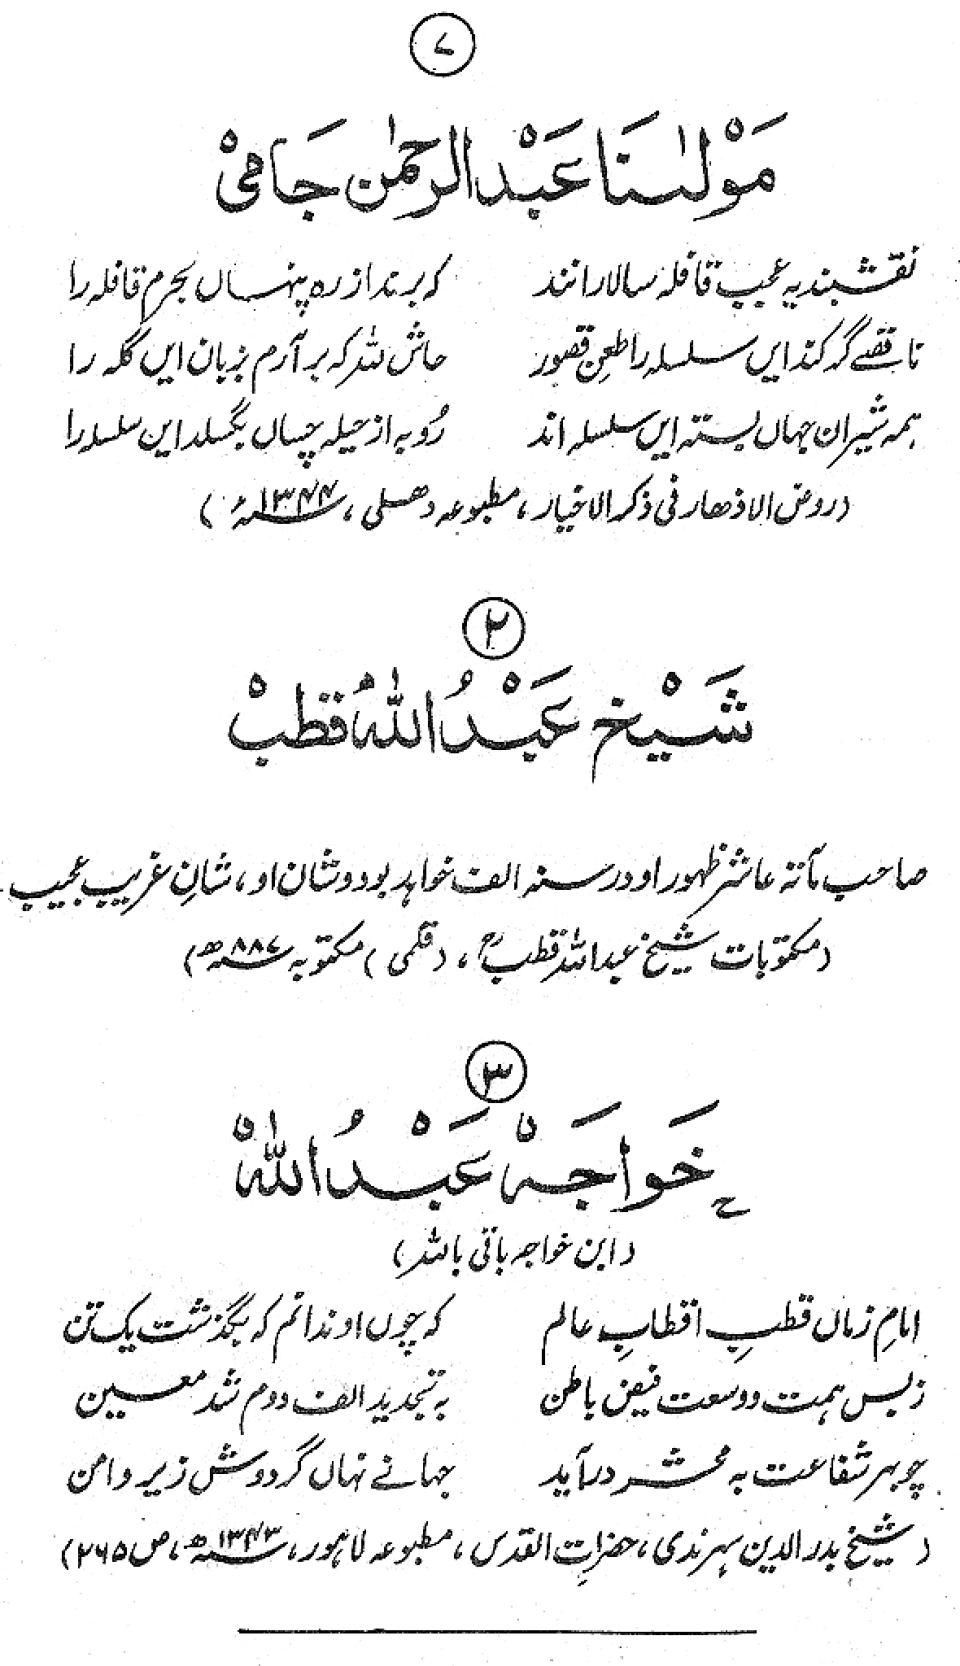 ۷
مَوْلٰنَا عَبْدالرحمٰن جَامیْ
نقشبندیہ عجب قافلہ سالارانند کہ برند از رہ پنہاں بحرم قافلہ را
ناقصے گر کند ایں سلسلہ را طعنِ قصور حاش للہ کہ بر آرم بزباں ایں گلہ را
ہمہ شیرانِ جہاں بستہ ایں سلسلہ اند رُوبہ از حیلہ چساں بگسلد این سلسلہ را
(روض الاذھار فی ذکر الاخیار، مطبوعہ دھلی، ۱۳۴۴ سنہ ء)
۲
شَیْخ عَبْدُ اللہُ قطبْ
صاحب مأتہ عاشر ظہور او در سنہ الف خواہد بود و شان او، شانِ غریب عجیب
(مکتوبات شیخ عبداللہ قطبؒ، (قلمی) مکتوبہ سنہ ۸۸۷ھ)
۳
خَواجَہْ عَبْدُ اللہْ
(ابن خواجہ باقی باللہ)
امامِ زماں قطبِ اقطابِ عالم کہ چوں او ندانم کہ بگذشت یک تن
زبس ہمت و وسعت فیض باطن بہ تجدید الف دوم شد معین
چو بہر شفاعت بہ محشر درآید جہانے نہاں گرددش زیر دامن
(شیخ بدر الدین سہرندی، حضرات القدس، مطبوعہ لاہور، سنہ ۱۳۴۳ھ، ص ۲۶۵)